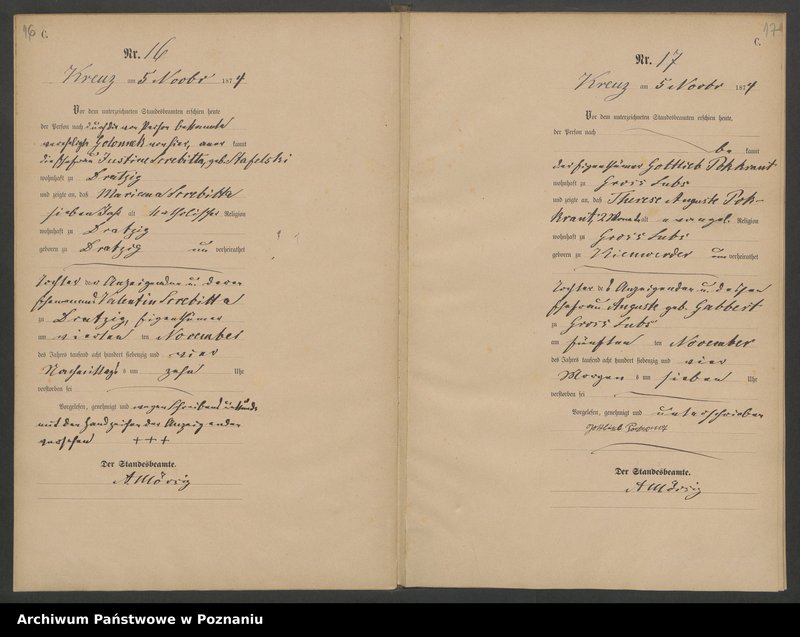 16 C.
Nr. 16
Kreuz am 5 Novbr 1874
Vor dem unterzeichneten Standesbeamten erschien heute
der Person nach durch die von Person bekannte
von hier, kannt
die Ehefrau Justine Screbitta, geb. Stafelski
wohnhaft zu Dratzig
und zeigte an, daß Marianna Screbitta
sieben Jahr alt katholischer Religion
wohnhaft zu Dratzig
geboren zu Dratzig un verheirathet
Tochter der Anzeigenden u. deren
Ehemannes Valentin Screbitta
zu Dratzig, Eigenthümer
am vierten ten November
des Jahres tausend acht hundert siebenzig und vier
Nachmittags um zehn Uhr
verstorben sei
Vorgelesen, genehmigt und wegen Schreibens unkunde
mit den Handzeichen der Anzeigenden
versehen +++
Der Standesbeamte.
A. Mörsig
C. 17
Nr. 17
Kreuz am 5 Novbr 1874
Vor dem unterzeichneten Standesbeamten erschien heute,
der Person nach
be kannt
der Eigenthümer Gottlieb Pokkrant
wohnhaft zu Gross Lubs
und zeigte an, daß Therese Auguste Pok-
krant, 2 Monat alt evangel. Religion
wohnhaft zu Gross Lubs
geboren zu Nienwerder un verheirathet
Tochter des Anzeigenden u. dessen
Ehefrau Auguste geb. Gabbert
zu Gross Lubs
am fünften ten November
des Jahres tausend acht hundert siebenzig und vier
Morgens um sieben Uhr
verstorben sei
Vorgelesen, genehmigt und unterschrieben
Gottlieb
Der Standesbeamte.
A Mörsig
Archiwum Państwowe w Poznaniu